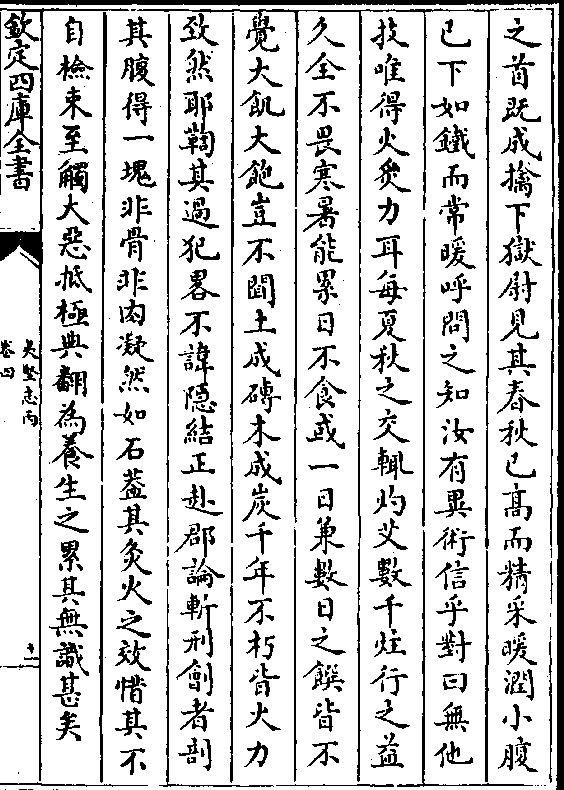 之酋既成擒下獄尉見其春秋已髙而精采暖潤小腹
已下如鐵而常暖呼問之知汝有異術信乎對曰無他
技唯得火灸力耳每夏秋之交輒灼艾數千炷行之益
久全不畏寒暑能累日不食或一日兼數日之饌皆不
覺大飢大飽豈不聞土成磚木成炭千年不朽皆火力
致然耶鞫其過犯畧不諱隠結正赴郡論斬刑劊者剖
其腹得一塊非骨非肉凝然如石葢其灸火之效惜其不
自檢束至觸大惡抵極典翻為養生之累其無識甚矣
欽定四庫全書
夷堅志丙
卷四
十一